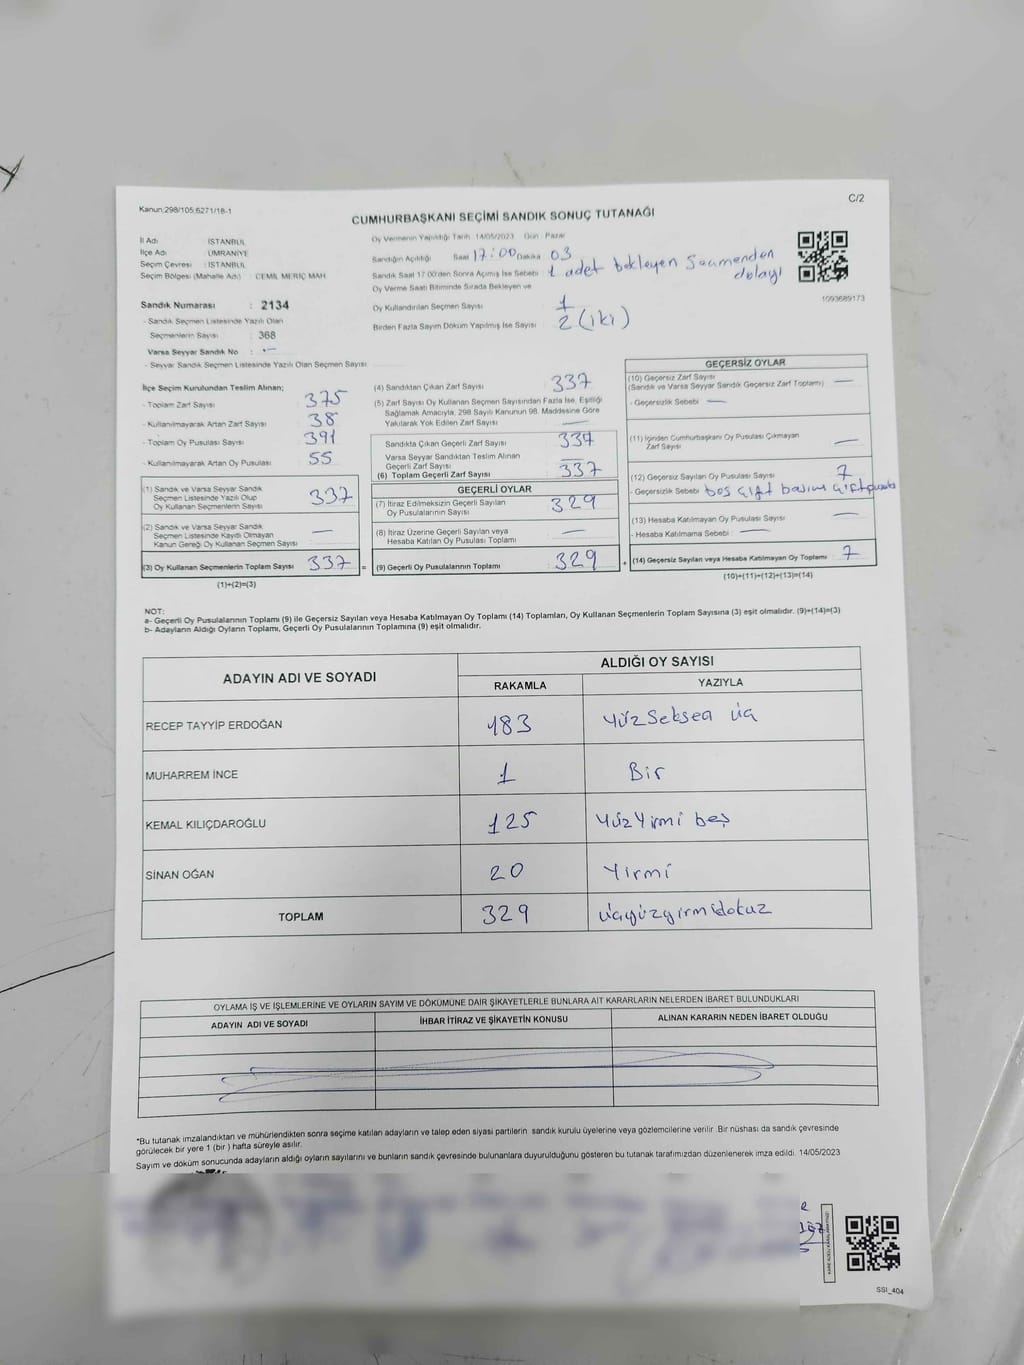 Kanun;298/105;6271/18-1
C/2
CUMHURBAŞKANI SEÇİMİ SANDIK SONUÇ TUTANAĞI
İl Adı : İSTANBUL
İlçe Adı : ÜMRANİYE
Seçim Çevresi : İSTANBUL
Seçim Bölgesi (Mahalle Adı) : CEMİL MERİÇ MAH
Sandık Numarası : 2134
- Sandık Seçmen Listesinde Yazılı Olan
Seçmenlerin Sayısı : 368
Varsa Seyyar Sandık No : -
- Seyyar Sandık Seçmen Listesinde Yazılı Olan Seçmen Sayısı
Oy Vermenin Yapıldığı Tarih 14/05/2023 Gün Pazar
Sandığın Açıldığı Saat 17:00 Dakika 03
Sandık Saat 17:00'den Sonra Açılmış İse Sebebi 1 adet bekleyen Seçmenden
dolayı
Oy Verme Saati Bitiminde Sırada Bekleyen ve
Oy Kullandırılan Seçmen Sayısı 1
Birden Fazla Sayım Döküm Yapılmış İse Sayısı 2 (iki)
1093689173
İlçe Seçim Kurulundan Teslim Alınan;
- Toplam Zarf Sayısı 375
- Kullanılmayarak Artan Zarf Sayısı 38
- Toplam Oy Pusulası Sayısı 391
- Kullanılmayarak Artan Oy Pusulası 55
(1) Sandık ve Varsa Seyyar Sandık
Seçmen Listesinde Yazılı Olup
Oy Kullanan Seçmenlerin Sayısı 337
(2) Sandık ve Varsa Seyyar Sandık
Seçmen Listesinde Kaydı Olmayan
Kanun Gereği Oy Kullanan Seçmen Sayısı —
(3) Oy Kullanan Seçmenlerin Toplam Sayısı 337 =
(1)+(2)=(3)
(4) Sandıktan Çıkan Zarf Sayısı 337
(5) Zarf Sayısı Oy Kullanan Seçmen Sayısından Fazla İse, Eşitliği
Sağlamak Amacıyla, 298 Sayılı Kanunun 98. Maddesine Göre
Yakılarak Yok Edilen Zarf Sayısı —
Sandıkta Çıkan Geçerli Zarf Sayısı 337
Varsa Seyyar Sandıktan Teslim Alınan
Geçerli Zarf Sayısı —
(6) Toplam Geçerli Zarf Sayısı 337
GEÇERLİ OYLAR
(7) İtiraz Edilmeksizin Geçerli Sayılan
Oy Pusulalarının Sayısı 329
(8) İtiraz Üzerine Geçerli Sayılan veya
Hesaba Katılan Oy Pusulası Toplamı —
(9) Geçerli Oy Pusulalarının Toplamı 329 +
GEÇERSİZ OYLAR
(10) Geçersiz Zarf Sayısı
(Sandık ve Varsa Seyyar Sandık Geçersiz Zarf Toplamı) —
- Geçersizlik Sebebi —
(11) İçinden Cumhurbaşkanı Oy Pusulası Çıkmayan
Zarf Sayısı —
(12) Geçersiz Sayılan Oy Pusulası Sayısı 7
- Geçersizlik Sebebi boş çift basım çift pusula
(13) Hesaba Katılmayan Oy Pusulası Sayısı —
- Hesaba Katılmama Sebebi —
(14) Geçersiz Sayılan veya Hesaba Katılmayan Oy Toplamı 7
(10)+(11)+(12)+(13)=(14)
NOT:
a- Geçerli Oy Pusulalarının Toplamı (9) ile Geçersiz Sayılan veya Hesaba Katılmayan Oy Toplamı (14) Toplamları, Oy Kullanan Seçmenlerin Toplam Sayısına (3) eşit olmalıdır. (9)+(14)=(3)
b- Adayların Aldığı Oyların Toplamı, Geçerli Oy Pusulalarının Toplamına (9) eşit olmalıdır.
ADAYIN ADI VE SOYADI
ALDIĞI OY SAYISI
RAKAMLA YAZIYLA
RECEP TAYYİP ERDOĞAN 183 Yüz Seksen üç
MUHARREM İNCE 1 Bir
KEMAL KILIÇDAROĞLU 125 Yüz Yirmi beş
SİNAN OĞAN 20 Yirmi
TOPLAM 329 üçyüzyirmidokuz
OYLAMA İŞ VE İŞLEMLERİNE VE OYLARIN SAYIM VE DÖKÜMÜNE DAİR ŞİKAYETLERLE BUNLARA AİT KARARLARIN NELERDEN İBARET BULUNDUKLARI
ADAYIN ADI VE SOYADI İHBAR İTİRAZ VE ŞİKAYETİN KONUSU ALINAN KARARIN NEDEN İBARET OLDUĞU
*Bu tutanak imzalandıktan ve mühürlendikten sonra seçime katılan adayların ve talep eden siyasi partilerin sandık kurulu üyelerine veya gözlemcilerine verilir. Bir nüshası da sandık çevresinde
görülecek bir yere 1 (bir) hafta süreyle asılır.
Sayım ve döküm sonucunda adayların aldığı oyların sayılarını ve bunların sandık çevresinde bulunanlara duyurulduğunu gösteren bu tutanak tarafımızdan düzenlenerek imza edildi. 14/05/2023
SSI_404